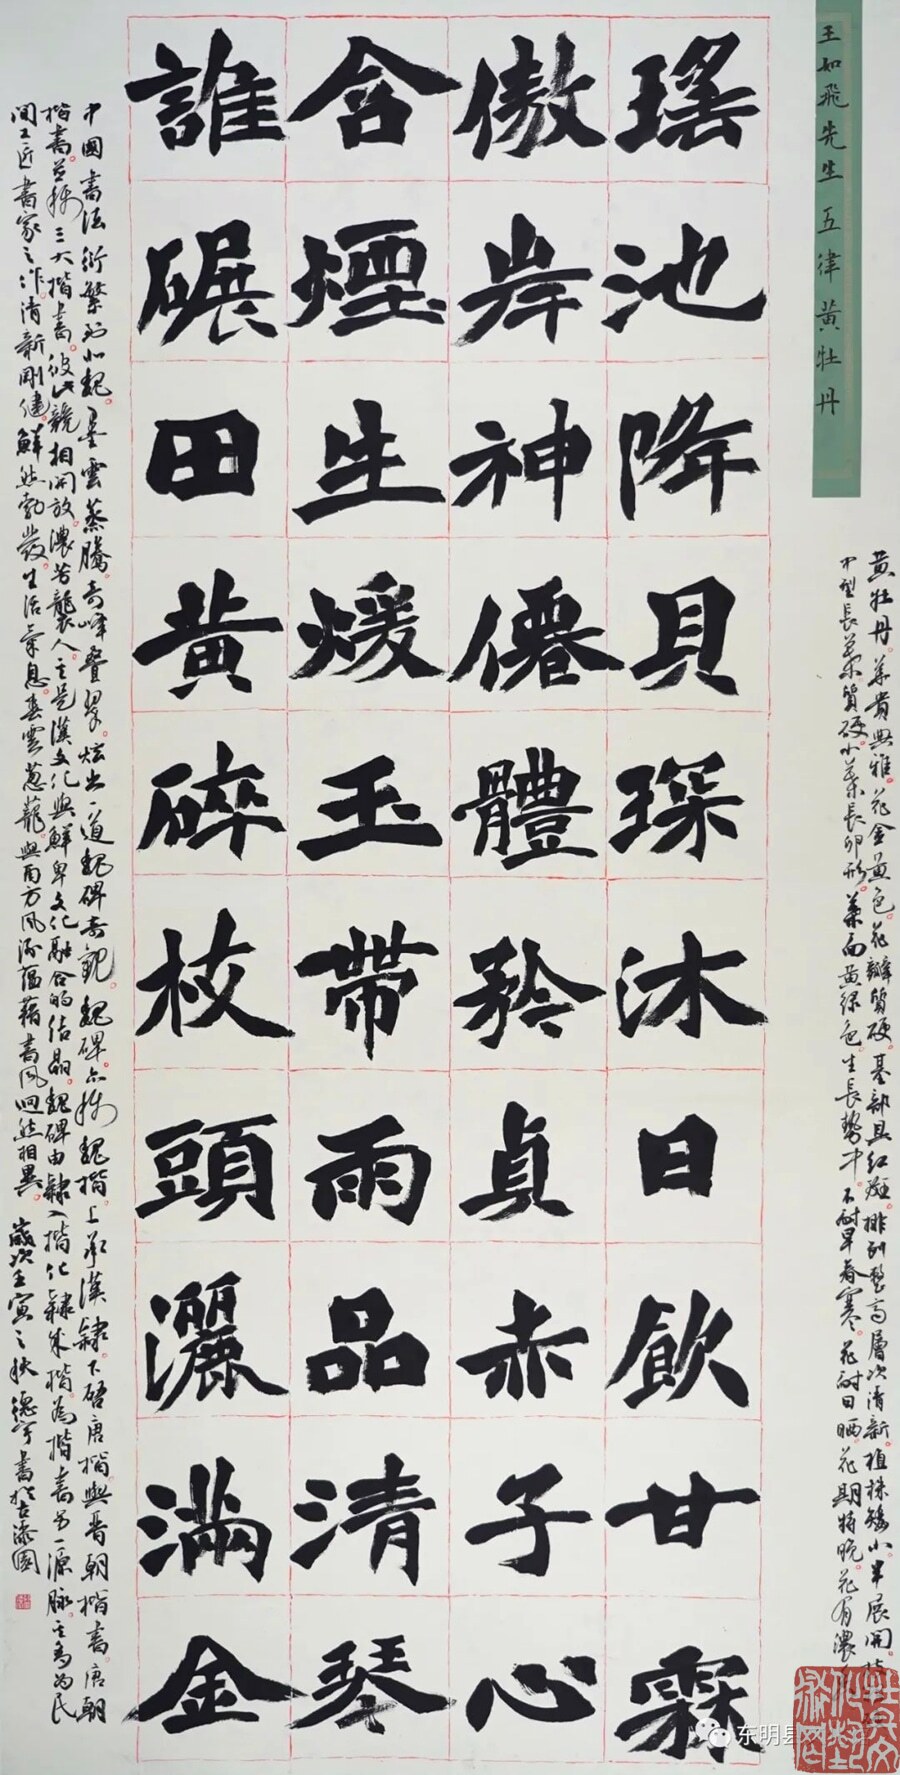 王如飛先生五律黃牡丹
黄牡丹。華貴典雅。花金黄色。花瓣質硬。基部具紅斑。排列整齊層次清新。植株矮小。半展開。枝
中型長葉。質硬。小葉長卵形。葉面黄綠色。生長勢中。不耐早春寒。花耐日晒。花期特晚。花有濃香
瑤池降貝琛沐日飲甘霖
傲岸神僊體矜貞赤子心
含煙生煖玉帶雨品清琴
誰碾田黃碎枝頭灑滿金
中國書法衍繁到北魏。墨雲蒸騰。奇峰叠翠。炫出一道魏碑奇觀。魏碑。亦稱魏楷。上承漢隸。下啓唐楷。與晋朝楷書。唐朝
楷書。並稱三大楷書。彼此競相開放。濃芳襲人。它是漢文化與鮮卑文化融合的结晶。魏碑由隸入楷。化隸成楷。為楷書另一源脉。它多為民
間工匠書家之作。清新剛健。鮮然勃發。生活氣息春雲葱蘢。與南方风流蕴藉書风迥然相異。歲次壬寅之秋德宇書於古漆園
东明县